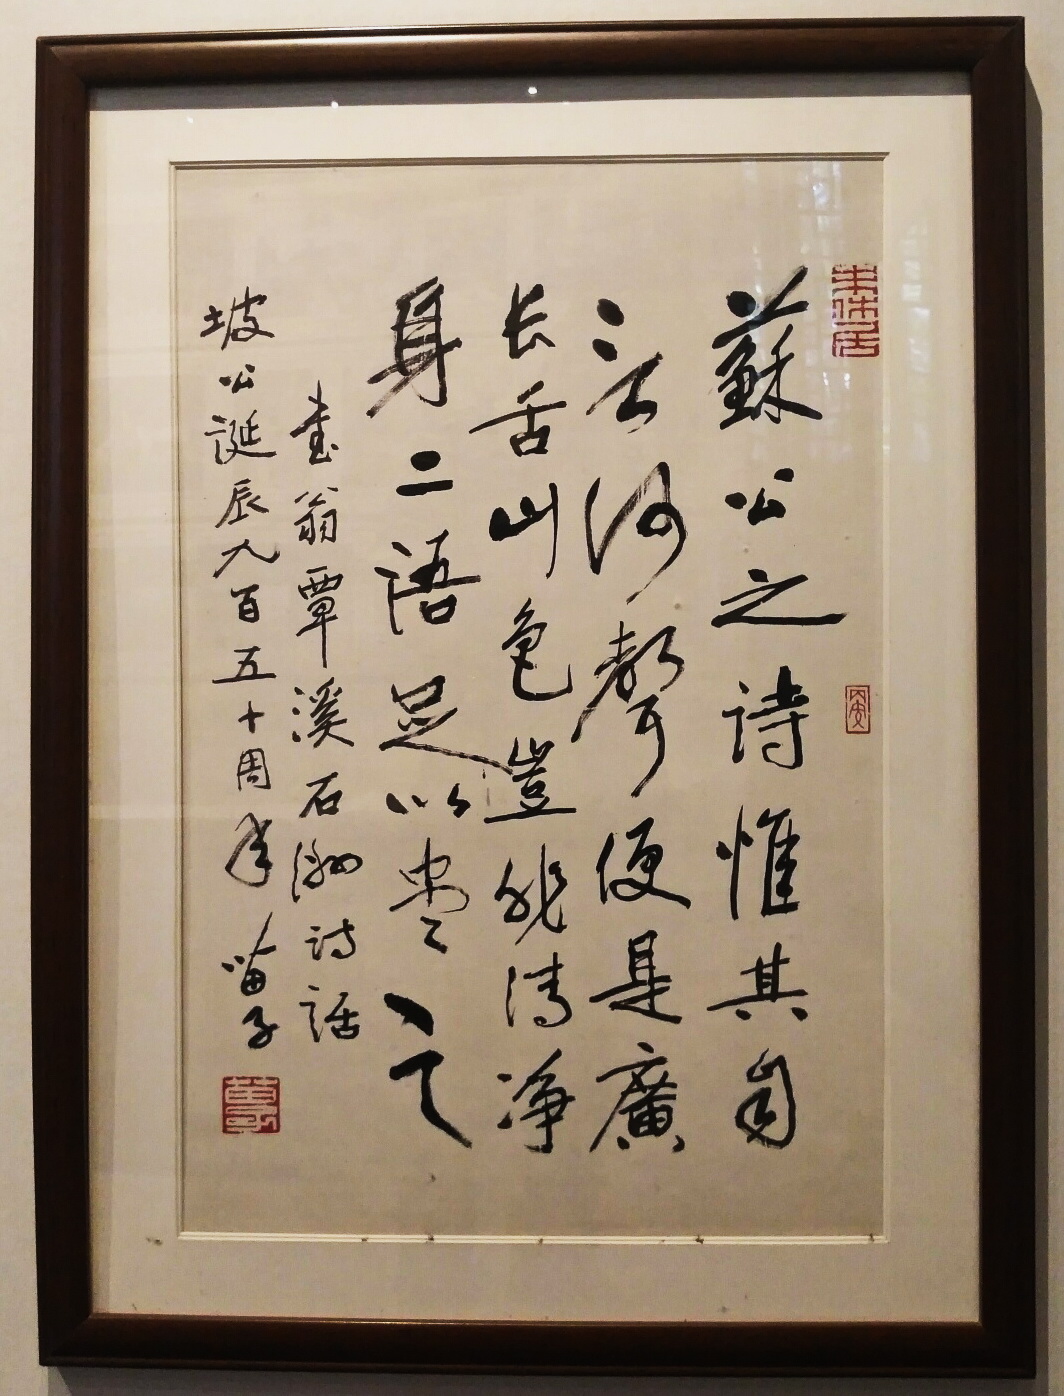 蘇公之詩惟其自
言河聲便是廣
長舌山色豈非清淨
身二語足以盡之
書翁覃溪石洲詩話
坡公誕辰九百五十周年 苗子
苗子